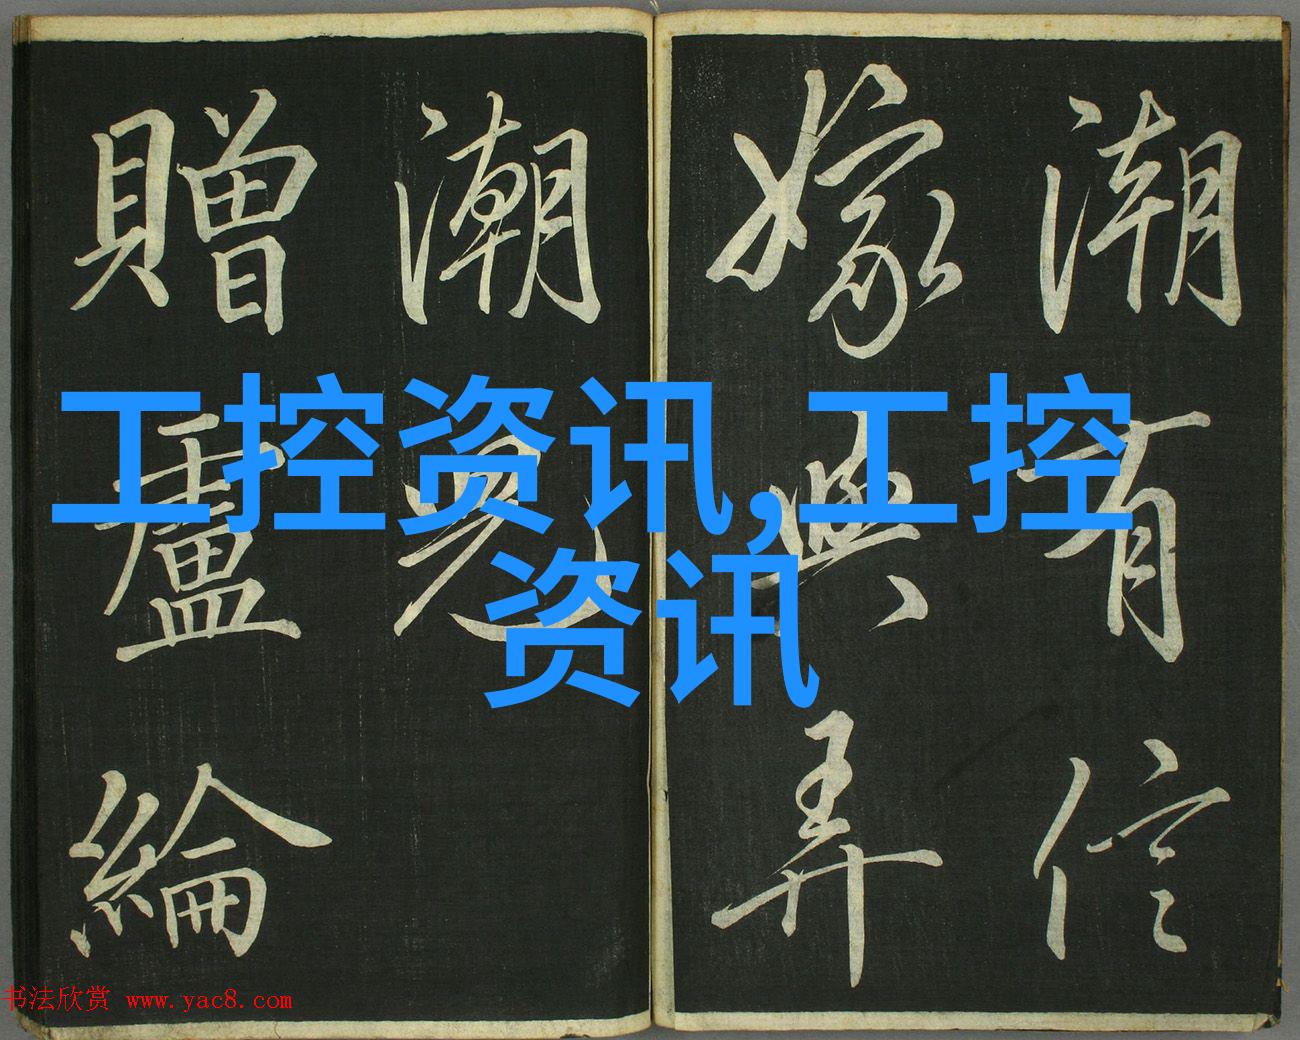 潮有信
嫁與弄
潮兒
贈盧綸
工控资讯,工控
资讯
书法欣赏 www.yac8.com